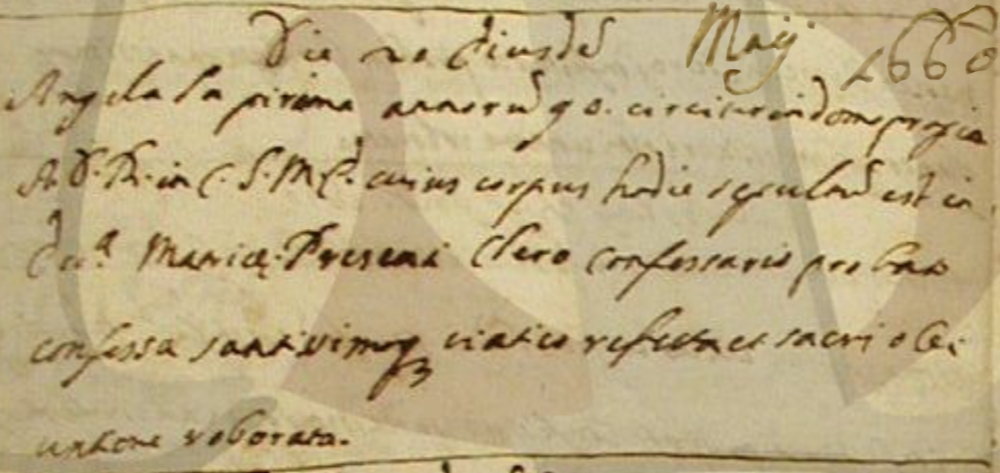 Die 20 eiusdē Maij 1660
Angela La pirima annorū 90. circiter in domo propria
A. D. R. in C. S. M. E. cuius corpus hodie sepultū est in
Mariæ. Presenti Clero confessario probato
confessa santissimoq3 viatico refecta et sacri olei
untione roborata.